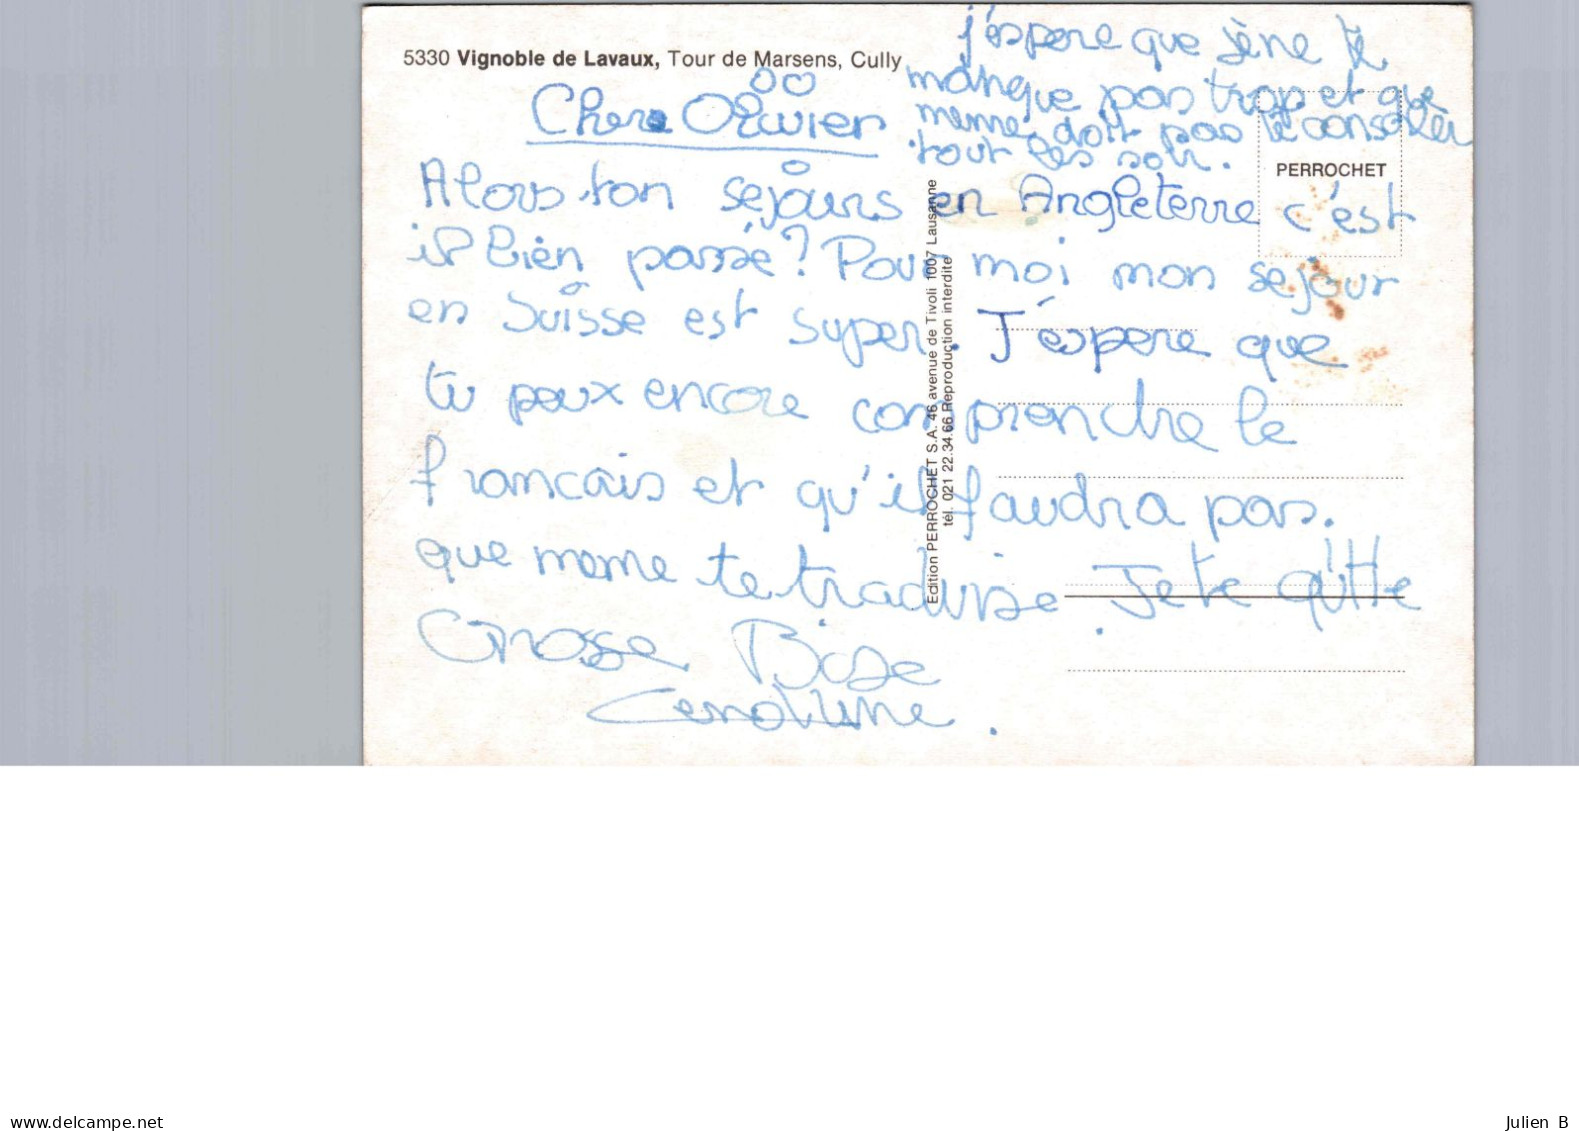 5330 Vignoble de Lavaux, Tour de Marsens, Cully
j'espere que jène te
manque pas trop et que
meme doit pas te consoler
tout les soir.
PERROCHET
Chere Olivier
Alors ton séjours en Angleterre c'est
il bien passé? Pour moi mon sejour
en Suisse est super. J'éspere que
tu peux encore comprendre le
francais et qu'il faudra pas.
que meme te traduise. Je te quitte
Grosse Bise
Edition PERROCHET S.A. 46 avenue de Tivoli 1007 Lausanne
tél. 021 22.34.66 Reproduction interdite
www.delcampe.net
Julien B